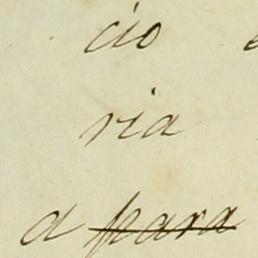 cio
ria
a para